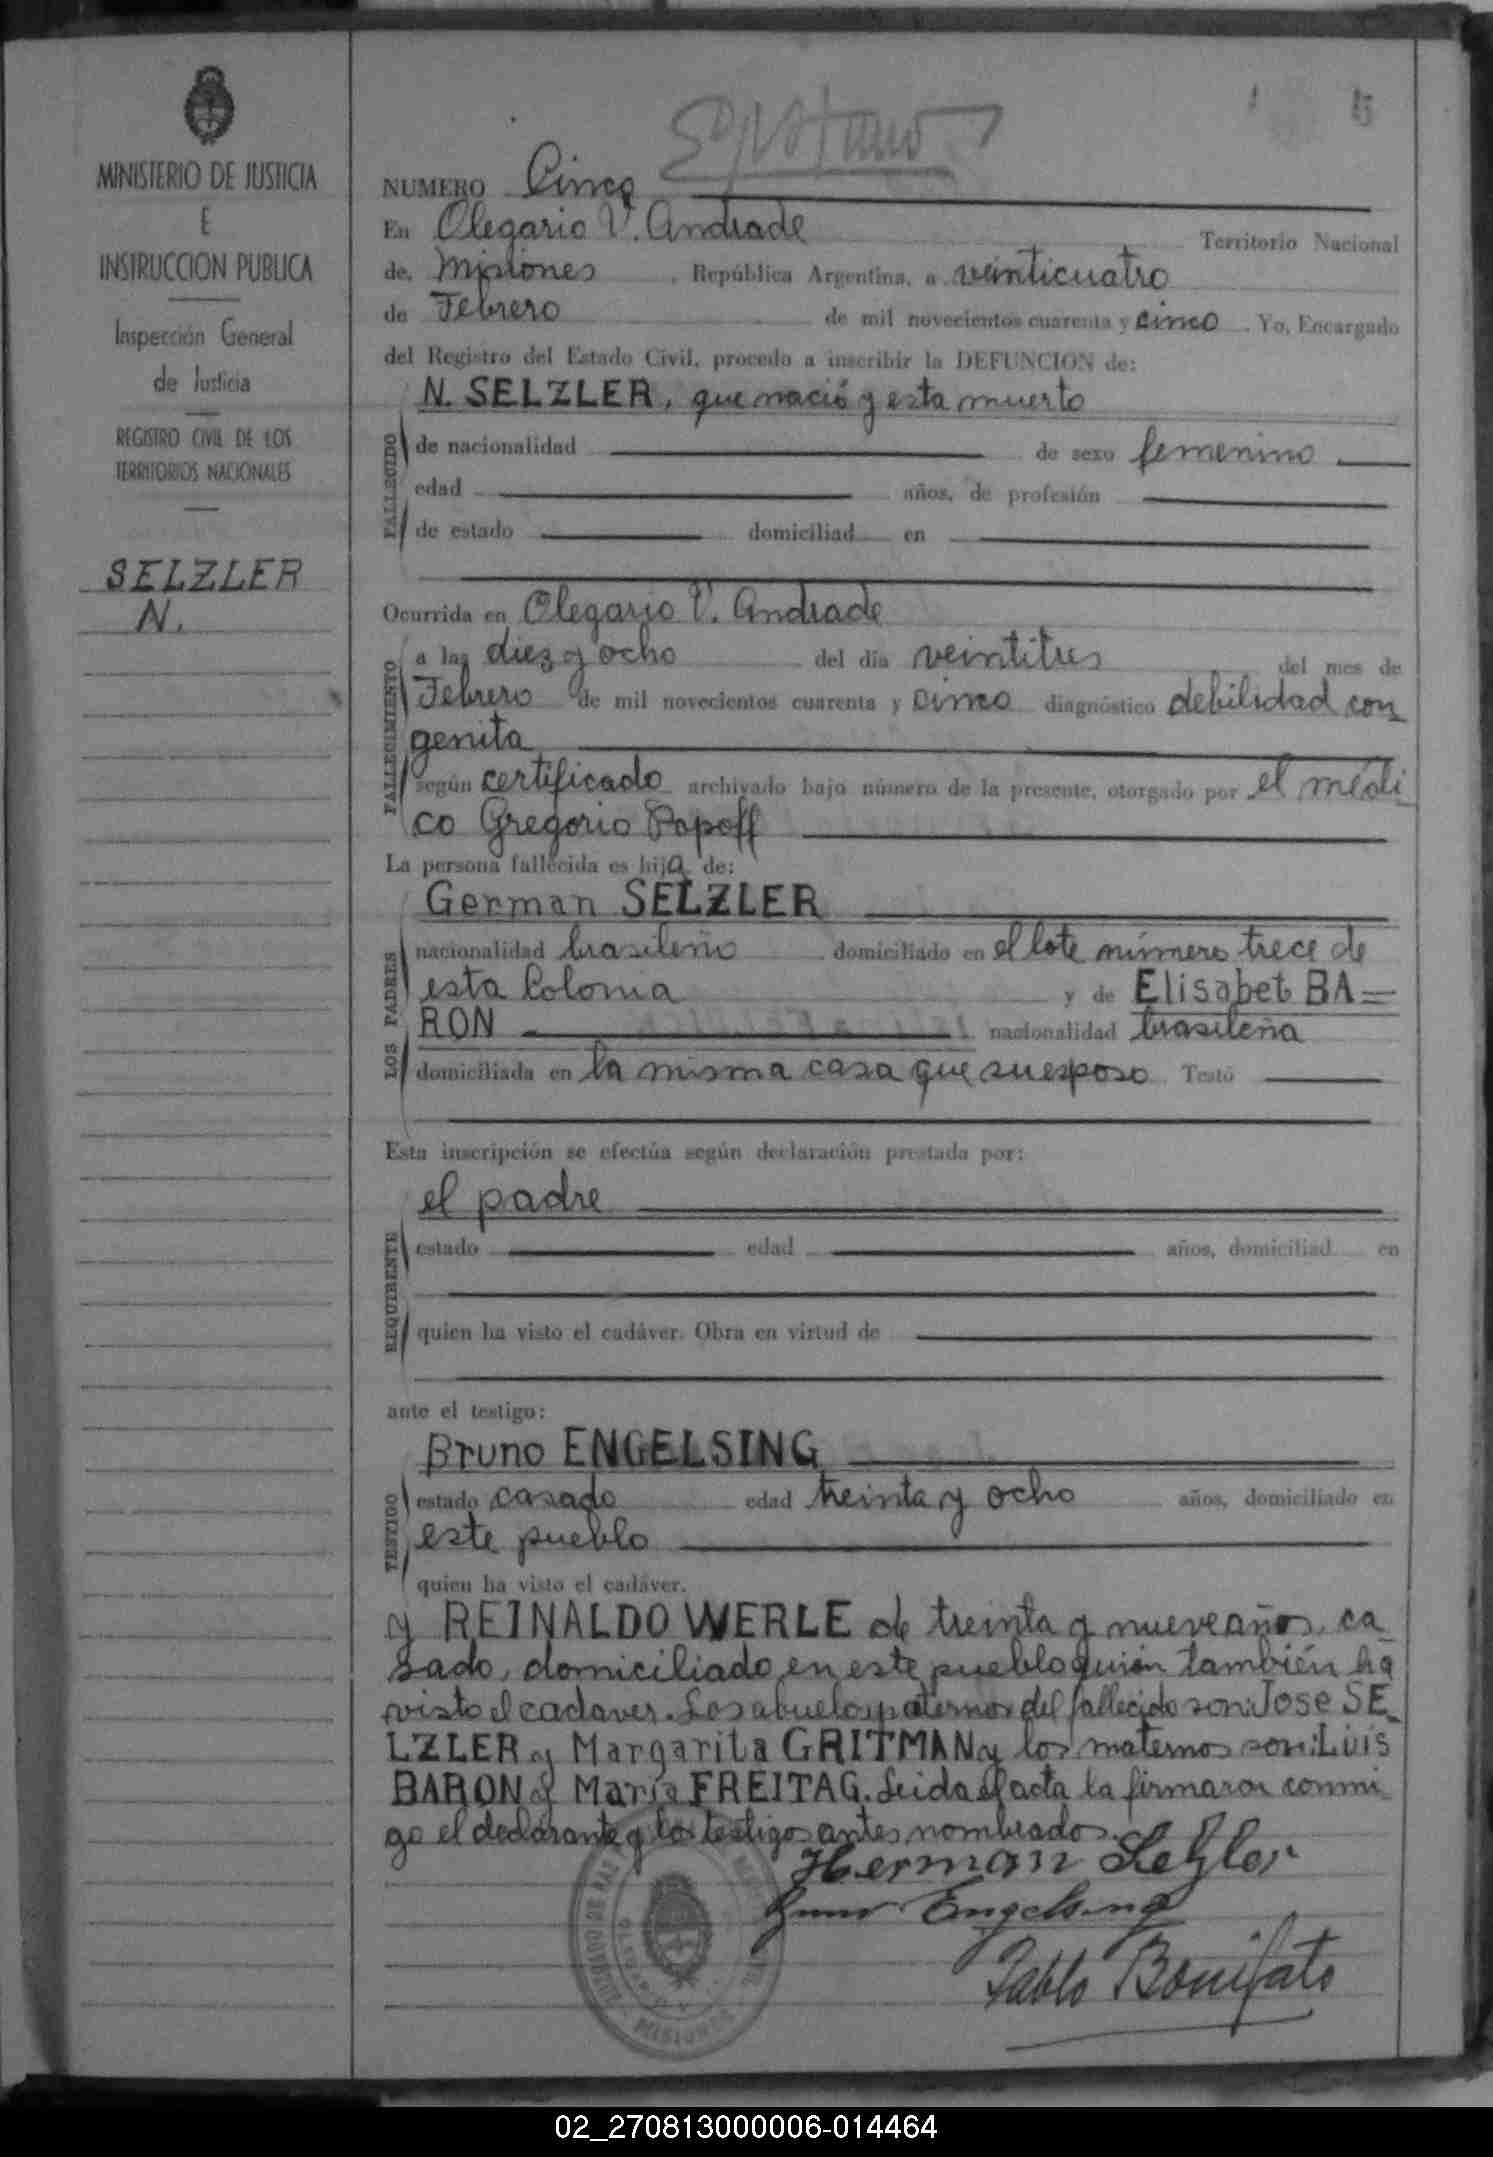 MINISTERIO DE JUSTICIA
E
INSTRUCCION PUBLICA
Inspección General
de Justicia
REGISTRO CIVIL DE LOS
TERRITORIOS NACIONALES
SELZLER
N.
5
NUMERO Cinco
En Olegario V. Andrade Territorio Nacional
de, Misiones, República Argentina, a veinticuatro
de Febrero de mil novecientos cuarenta y cinco. Yo, Encargado
del Registro del Estado Civil, procedo a inscribir la DEFUNCION de:
N. SELZLER, que nació y esta muerto
FALLECIDO
de nacionalidad de sexo femenino
edad años, de profesión
de estado domiciliad en
Ocurrida en Olegario V. Andrade
FALLECIMIENTO
a las diez y ocho del día veintitres del mes de
Febrero de mil novecientos cuarenta y cinco diagnóstico debilidad con
genita
según certificado archivado bajo número de la presente, otorgado por el médi
co Gregorio Papoff
La persona fallecida es hija de:
German SELZLER
LOS PADRES
nacionalidad brasileño domiciliado en el lote número trece de
esta Colonia y de Elisabet BA=
RON nacionalidad brasileña
domiciliada en la misma casa que su esposo Testó
Esta inscripción se efectúa según declaración prestada por:
el padre
REQUIRENTE
estado edad años, domiciliad en
quien ha visto el cadáver. Obra en virtud de
ante el testigo:
Bruno ENGELSING
TESTIGO
estado casado edad treinta y ocho años, domiciliado en
este pueblo
quien ha visto el cadáver.
y REINALDO WERLE de treinta y nueve años, ca
sado, domiciliado en este pueblo quien también ha
visto el cadaver. Los abuelos paternos del fallecido son: Jose SE
LZLER y Margarita GRITMAN y los maternos son: Luis
BARON y Maria FREITAG. Leida el acta la firmaron conmi
go el declarante y los testigos antes nombrados.
Herman Selzler
Bruno Engelsing
Pablo Bonifato
MISIONES
02_270813000006-014464